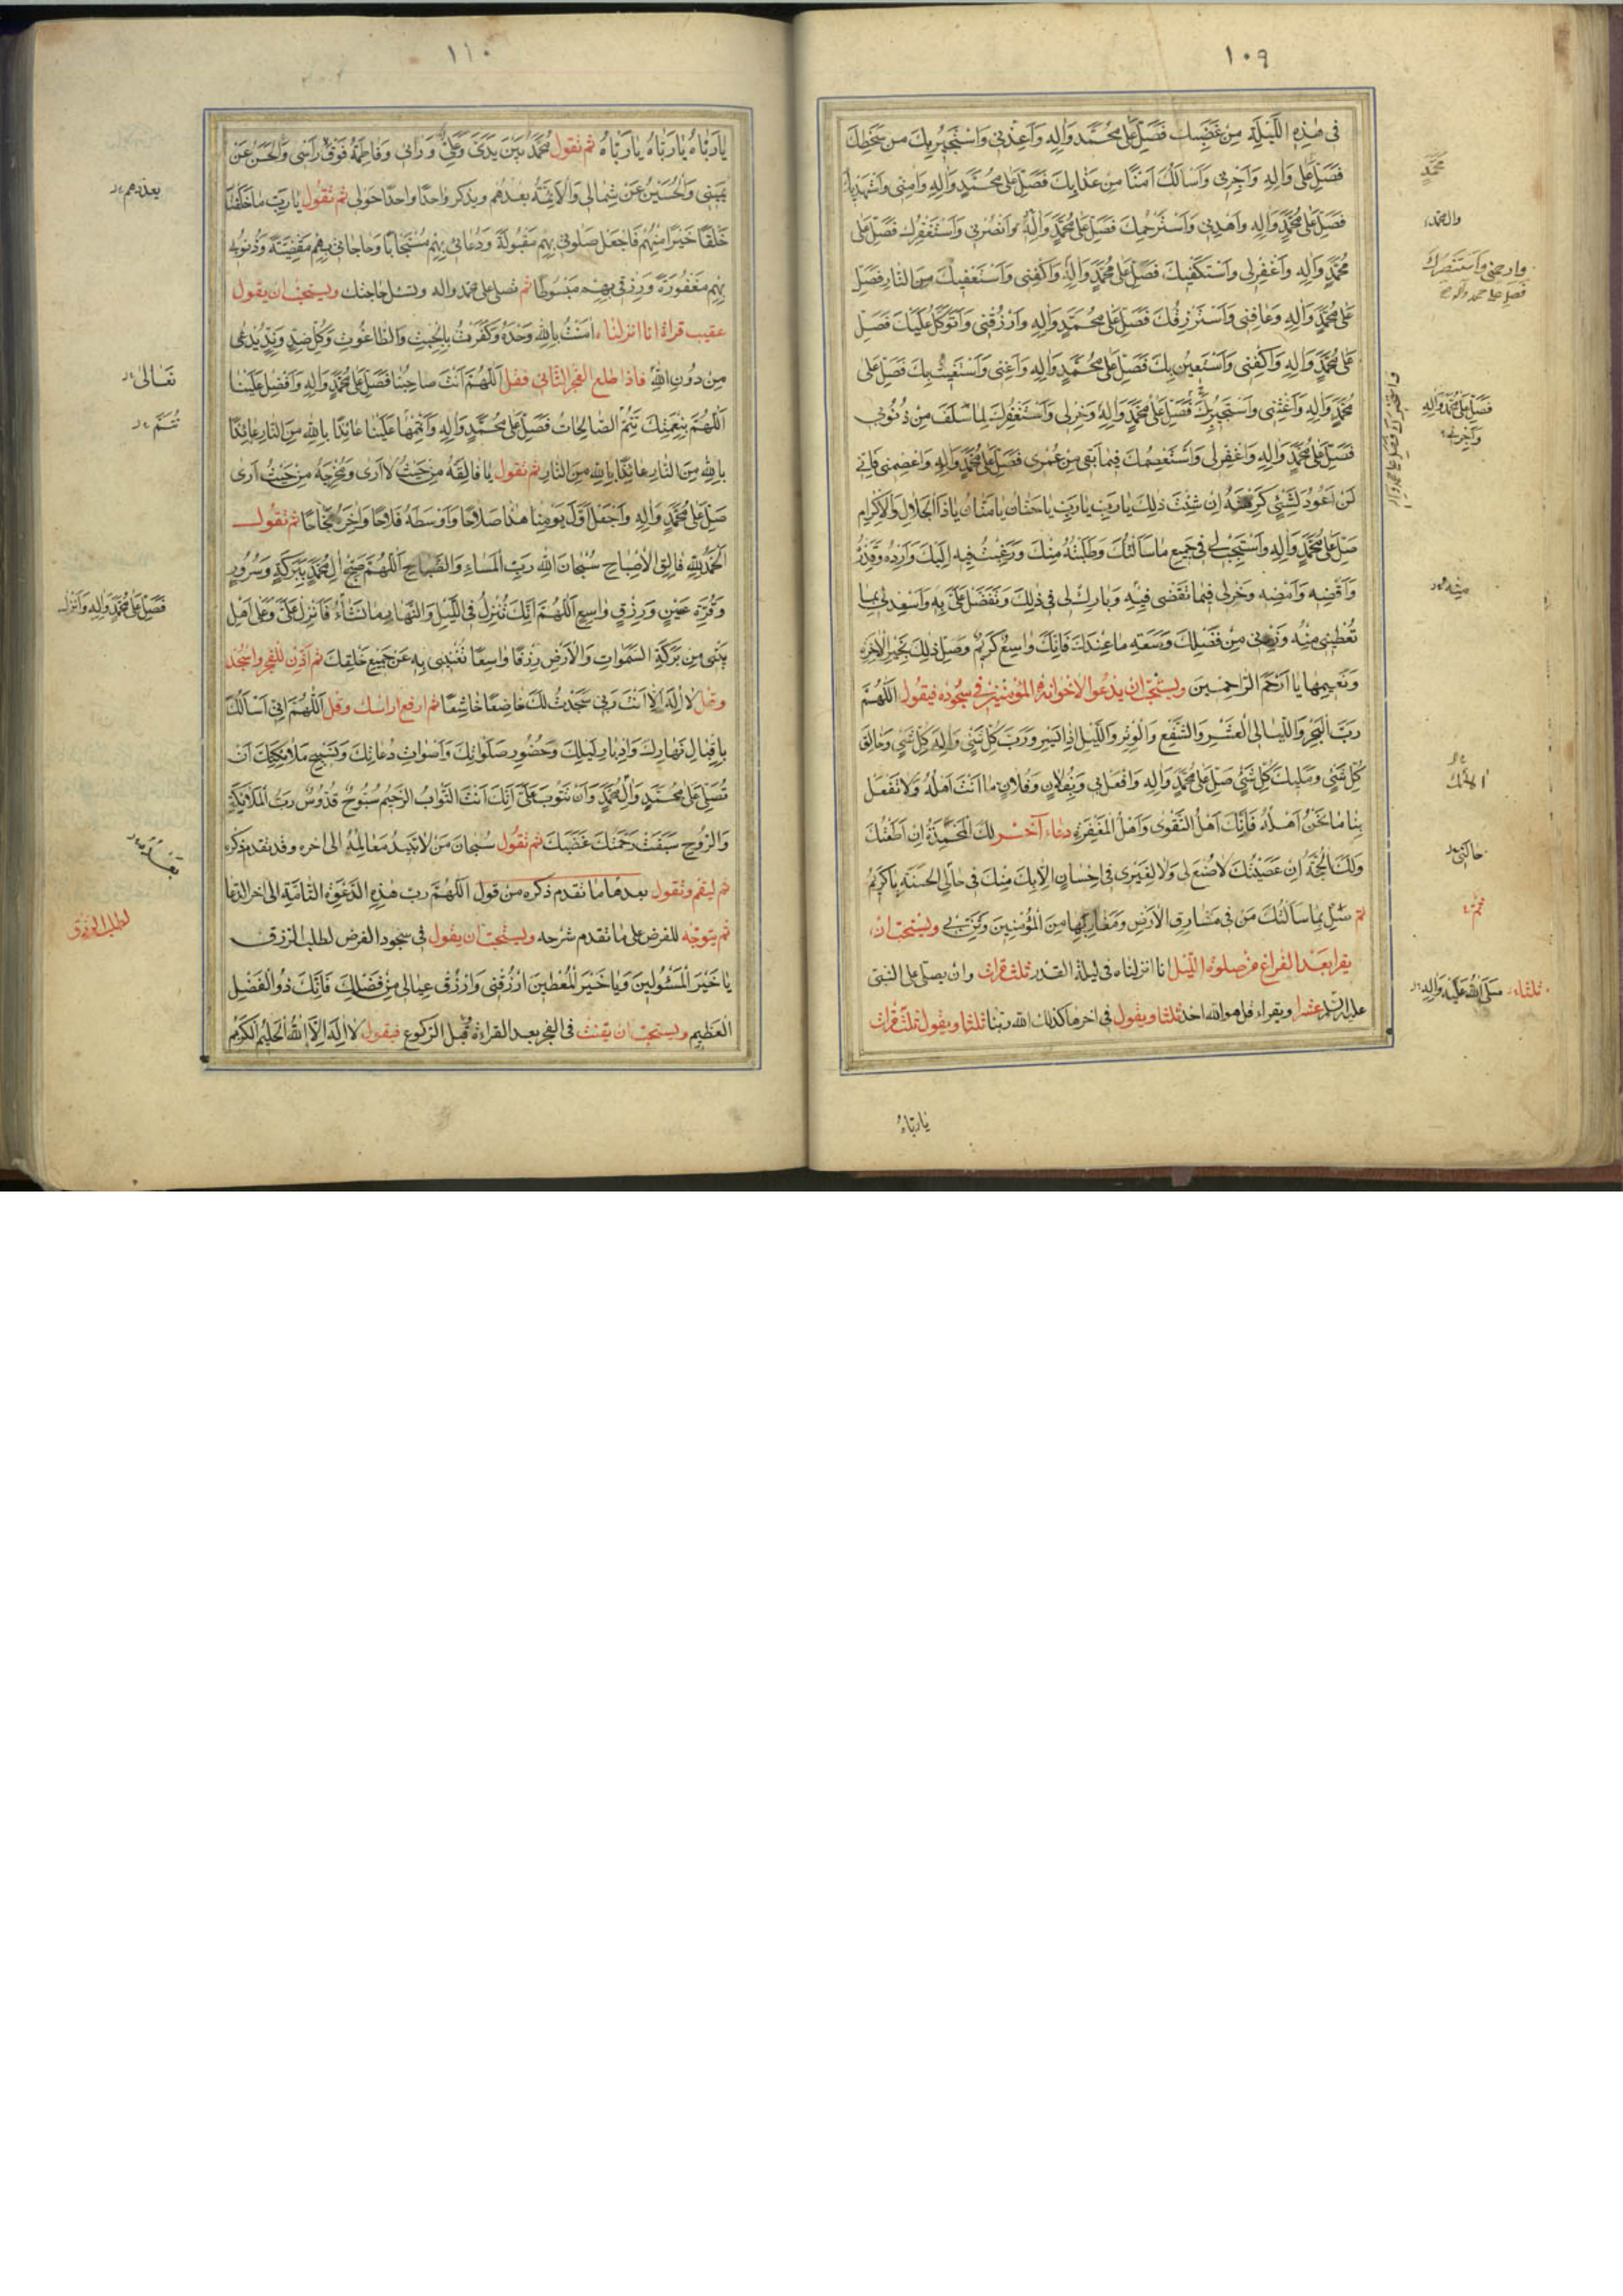 ١٠٩
فى هذِهِ اللَّيْلَةِ مِنْ غَضَبِكَ فَصَلِّ عَلى مُحَمَّدٍ وَالِهِ وَاَعِذْنى وَاَسْتَجيرُ بِكَ مِنْ سَخَطِكَ
فَصَلِّ عَلى وَالِهِ وَاَجِرْنى وَاَسْاَلُكَ اَمْنًا مِنْ عَذابِكَ فَصَلِّ عَلى مُحَمَّدٍ وَالِهِ وَامِنّى وَاَسْتَهْديكَ
فَصَلِّ عَلى مُحَمَّدٍ وَالِهِ وَاهْدِنى وَاَسْتَرْحِمُكَ فَصَلِّ عَلى مُحَمَّدٍ وَالِهِ وَانْصُرْنى وَاَسْتَغْفِرُكَ فَصَلِّ عَلى
مُحَمَّدٍ وَالِهِ وَاغْفِرْلى وَاَسْتَكْفيكَ فَصَلِّ عَلى مُحَمَّدٍ وَالِهِ وَاكْفِنى وَاَسْتَعْفيكَ مِنَ النّارِ فَصَلِّ
عَلى مُحَمَّدٍ وَالِهِ وَعافِنى وَاَسْتَرْزِقُكَ فَصَلِّ عَلى مُحَمَّدٍ وَالِهِ وَارْزُقْنى وَاَتَوَكَّلُ عَلَيْكَ فَصَلِّ
عَلى مُحَمَّدٍ وَالِهِ وَاكْفِنى وَاَسْتَعينُ بِكَ فَصَلِّ عَلى مُحَمَّدٍ وَالِهِ وَاَعِنّى وَاَسْتَغيثُ بِكَ فَصَلِّ عَلى
مُحَمَّدٍ وَالِهِ وَاَغِثْنى وَاَسْتَجيرُ بِكَ فَصَلِّ عَلى مُحَمَّدٍ وَالِهِ وَخِرْلى وَاَسْتَغْفِرُكَ لِما سَلَفَ مِنْ ذُنُوبى
فَصَلِّ عَلى مُحَمَّدٍ وَالِهِ وَاغْفِرْلى وَاَسْتَعْصِمُكَ فيما بَقِىَ مِنْ عُمْرى فَصَلِّ عَلى مُحَمَّدٍ وَالِهِ وَاعْصِمْنى فَاِنّى
لَنْ اَعُودَ لِشَىْءٍ كَرِهْتَهُ اِنْ شِئْتَ ذلِكَ يارَبِّ يارَبِّ ياحَنّانُ يامَنّانُ ياذَا الْجَلالِ وَالْاِكْرامِ
صَلِّ عَلى مُحَمَّدٍ وَالِهِ وَاسْتَجِبْ لى فى جَميعِ ما سَاَلْتُكَ وَطَلَبْتُهُ مِنْكَ وَرَغِبْتُ فيهِ اِلَيْكَ وَاَرِدْهُ وَقَدِّرْهُ
وَاقْضِهِ وَاَمْضِهِ وَخِرْلى فيما تَقْضى فيهِ وَبارِكْ لى فى ذلِكَ وَتَفَضَّلْ عَلَىَّ بِهِ وَاَسْعِدْنى بِما
تُعْطينى مِنْهُ وَزِدْنى مِنْ فَضْلِكَ وَسَعَةِ ما عِنْدَكَ فَاِنَّكَ واسِعٌ كَريمٌ وَصِلْ ذلِكَ بِخَيْرِ الْاخِرَةِ
وَنَعيمِها يا اَرْحَمَ الرّاحِمينَ ويستحب ان يدعوا لاخوانه المؤمنين فى سجوده فيقول اَللّهُمَّ
رَبَّ الْفَجْرِ وَاللَّيالِى الْعَشْرِ وَالشَّفْعِ وَالْوَتْرِ وَاللَّيْلِ اِذا يَسْرِ وَرَبَّ كُلِّ شَىْءٍ وَاِلهَ كُلِّ شَىْءٍ وَخالِقَ
كُلِّ شَىْءٍ وَمَليكَ كُلِّ شَىْءٍ صَلِّ عَلى مُحَمَّدٍ وَالِهِ وَافْعَلْ بى وَبِفُلانٍ وَفُلانٍ ما اَنْتَ اَهْلُهُ وَلا تَفْعَلْ
بِنا ما نَحْنُ اَهْلُهُ فَاِنَّكَ اَهْلُ التَّقْوى وَاَهْلُ الْمَغْفِرَةِ دعاء آخر لَكَ الْمَحْمَدَةُ اِنْ اَطَعْتُكَ
وَلَكَ الْحُجَّةُ اِنْ عَصَيْتُكَ لا صُنْعَ لى وَلا لِغَيْرى فى اِحْسانٍ اِلّا بِكَ مِنْكَ فى حالِى الْحَسَنَةِ ياكَريمُ
ثم صِلْ بِما سَاَلْتُكَ مَنْ فى مَشارِقِ الْاَرْضِ وَمَغارِبِها مِنَ الْمُؤْمِنينَ وَثَنِّ بى ويستحب ان
يقرا بعد الفراغ من صلوة الليل انا انزلناه فى ليلة القدر ثلث قرات وان يصلى على النبى
عليه السلم عشرا ويقراء قل هو الله احد ثلثا ويقول فى اخرها كذلك الله ربنا ثلثا ويقول ثلث قرات
يارَبّاهُ
مُحَمَّدٍ
وارحمنى واستنصرك
فصل على محمد وآله
فَصَلِّ عَلى مُحَمَّدٍ وَالِهِ
وَاَجِرْنى
حالَتِى
صَلَّى اللهُ عَلَيْهِ وَالِهِ
١١٠
يارَبّاهُ يارَبّاهُ يارَبّاهُ ثم تقول مُحَمَّدٌ بَيْنَ يَدَىَّ وَعَلِىٌّ وَرائى وَفاطِمَةُ فَوْقَ رَاْسى وَالْحَسَنُ عَنْ
يَمينى وَالْحُسَيْنُ عَنْ شِمالى وَالْاَئِمَّةُ بعدهم ويذكر واحدًا واحدًا حَوْلى ثم تقول يارَبِّ ما خَلَقْتَ
خَلْقًا خَيْرًا مِنْهُمْ فَاجْعَلْ صَلوتى بِهِمْ مَقْبُولَةً وَدُعائى بِهِمْ مُسْتَجابًا وَحاجاتى بِهِمْ مَقْضِيَّةً وَذُنُوبى
بِهِمْ مَغْفُورَةً وَرِزْقى بِهِمْ مَبْسُوطًا ثم تصلى على محمد واله وتسئل حاجتك ويستحب ان يقول
عقيب قراة انا انزلناه امَنْتُ بِاللهِ وَحْدَهُ وَكَفَرْتُ بِالْجِبْتِ وَالطّاغُوتِ وَكُلِّ ضِدٍّ وَنِدٍّ يُدْعى
مِنْ دُونِ اللهِ فاذا طلع الفجر الثانى فقل اَللّهُمَّ اَنْتَ صاحِبُنا فَصَلِّ عَلى مُحَمَّدٍ وَالِهِ وَاَفْضِلْ عَلَيْنا
اَللّهُمَّ بِنِعْمَتِكَ تَتِمُّ الصّالِحاتُ فَصَلِّ عَلى مُحَمَّدٍ وَالِهِ وَاَتْمِمْها عَلَيْنا عائِذًا بِاللهِ مِنَ النّارِ عائِذًا
بِاللهِ مِنَ النّارِ عائِذًا بِاللهِ مِنَ النّارِ ثم تقول يا فالِقَهُ مِنْ حَيْثُ لا اَرى وَمُخْرِجَهُ مِنْ حَيْثُ اَرى
صَلِّ عَلى مُحَمَّدٍ وَالِهِ وَاجْعَلْ اَوَّلَ يَوْمِنا هذا صَلاحًا وَاَوْسَطَهُ فَلاحًا وَاخِرَهُ نَجاحًا ثم تقول
اَلْحَمْدُ لِلّهِ فالِقِ الْاِصْباحِ سُبْحانَ اللهِ رَبِّ الْمَساءِ وَالصَّباحِ اَللّهُمَّ صَبِّحْ الَ مُحَمَّدٍ بِبَرَكَةٍ وَسُرُورٍ
وَقُرَّةِ عَيْنٍ وَرِزْقٍ واسِعٍ اَللّهُمَّ اِنَّكَ تُنْزِلُ فِى اللَّيْلِ وَالنَّهارِ ما تَشاءُ فَاَنْزِلْ عَلَىَّ وَعَلى اَهْلِ
بَيْتى مِنْ بَرَكَةِ السَّمواتِ وَالْاَرْضِ رِزْقًا واسِعًا تُغْنينى بِهِ عَنْ جَميعِ خَلْقِكَ ثم اذن للفجر واسجد
وقل لا اِلهَ اِلّا اَنْتَ رَبّى سَجَدْتُ لَكَ خاضِعًا خاشِعًا ثم ارفع راسك وقل اَللّهُمَّ اِنّى اَسْاَلُكَ
بِاِقْبالِ نَهارِكَ وَاِدْبارِ لَيْلِكَ وَحُضُورِ صَلَواتِكَ وَاَصْواتِ دُعاتِكَ وَتَسْبيحِ مَلائِكَتِكَ اَنْ
تُصَلِّىَ عَلى مُحَمَّدٍ وَالِ مُحَمَّدٍ وَاَنْ تَتُوبَ عَلَىَّ اِنَّكَ اَنْتَ التَّوّابُ الرَّحيمُ سُبُّوحٌ قُدُّوسٌ رَبُّ الْمَلائِكَةِ
وَالرُّوحِ سَبَقَتْ رَحْمَتُكَ غَضَبَكَ ثم تقول سُبْحانَ مَنْ لا تَبيدُ مَعالِمُهُ الى اخره وقد تقدم ذكره
ثم ليقم وتقول بعدها ما تقدم ذكره من قول اَللّهُمَّ رب هذِهِ الدَّعْوَةِ التّامَّةِ الى اخر الدعا
ثم يتوجه للفرض على ما تقدم شرحه ويستحب ان يقول فى سجود الفرض لطلب الرزق
يا خَيْرَ الْمَسْئُولينَ وَيا خَيْرَ الْمُعْطينَ ارْزُقْنى وَارْزُقْ عِيالى مِنْ فَضْلِكَ فَاِنَّكَ ذُو الْفَضْلِ
الْعَظيمِ ويستحب ان يقنت فى الفجر بعد القراءة قبل الركوع فيقول لا اِلهَ اِلّا اللهُ الْحَليمُ الْكَريمُ
بعدهم
تَعالى
تُتَمُّ
فَصَلِّ عَلى مُحَمَّدٍ وَالِهِ وَاَنْزِلْ
لطلب الرزق